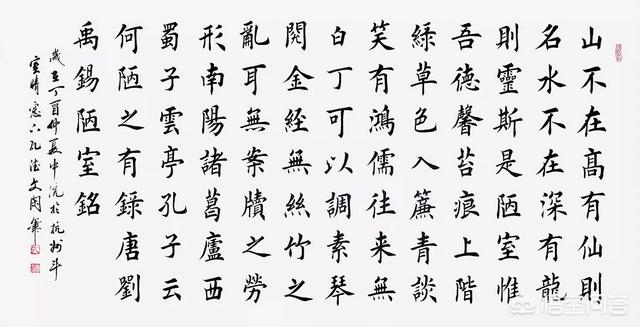 山不在高有仙則
名水不在深有龍
則靈斯是陋室惟
吾德馨苔痕上階
綠草色入簾青談
笑有鴻儒往来無
白丁可以調素琴
閱金經無絲竹之
亂耳無案牘之勞
形南陽諸葛廬西
蜀子雲亭孔子云
何陋之有錄唐劉
禹錫陋室銘
歲在丁酉仲夏中浣於杭州斗
室晴窗六孔文
悟空问答